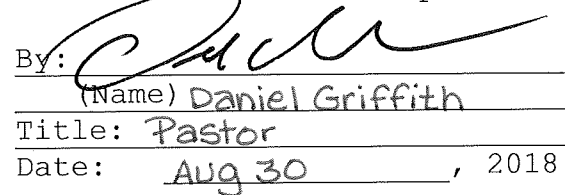 By:
(Name) Daniel Griffith
Title: Pastor
Date: Aug 30, 2018